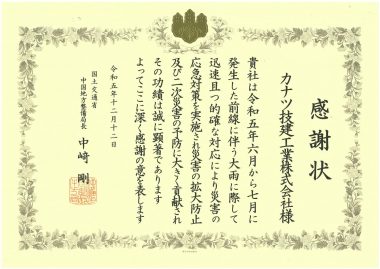 感謝状
カナツ技建工業株式会社様
貴社は令和五年六月から七月に
発生した前線に伴う大雨に際して
迅速且つ的確な対応により災害の
応急対策を実施され災害の拡大防止
及び二次災害の予防に大きく貢献され
その功績は誠に顕著であります
よってここに深く感謝の意を表します
令和五年十二月十二日
国土交通省
中国地方整備局長
中﨑 剛